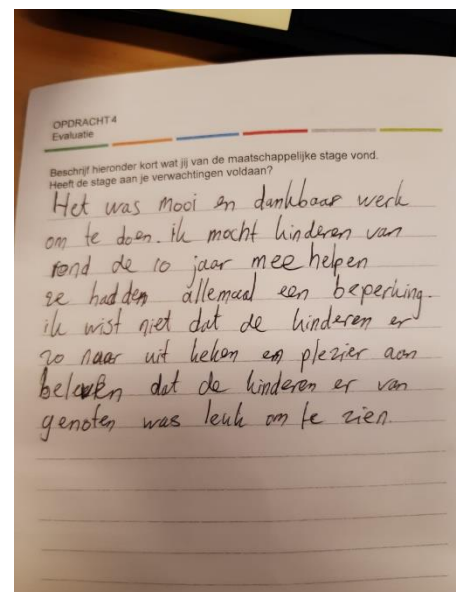 OPDRACHT 4
Evaluatie
Beschrijf hieronder kort wat jij van de maatschappelijke stage vond.
Heeft de stage aan je verwachtingen voldaan?
Het was mooi en dankbaar werk
om te doen. ik mocht kinderen van
rond de 10 jaar mee helpen
ze hadden allemaal een beperking.
ik wist niet dat de kinderen er
zo naar uit keken en plezier aan
beleven dat de kinderen er van
genoten was leuk om te zien.